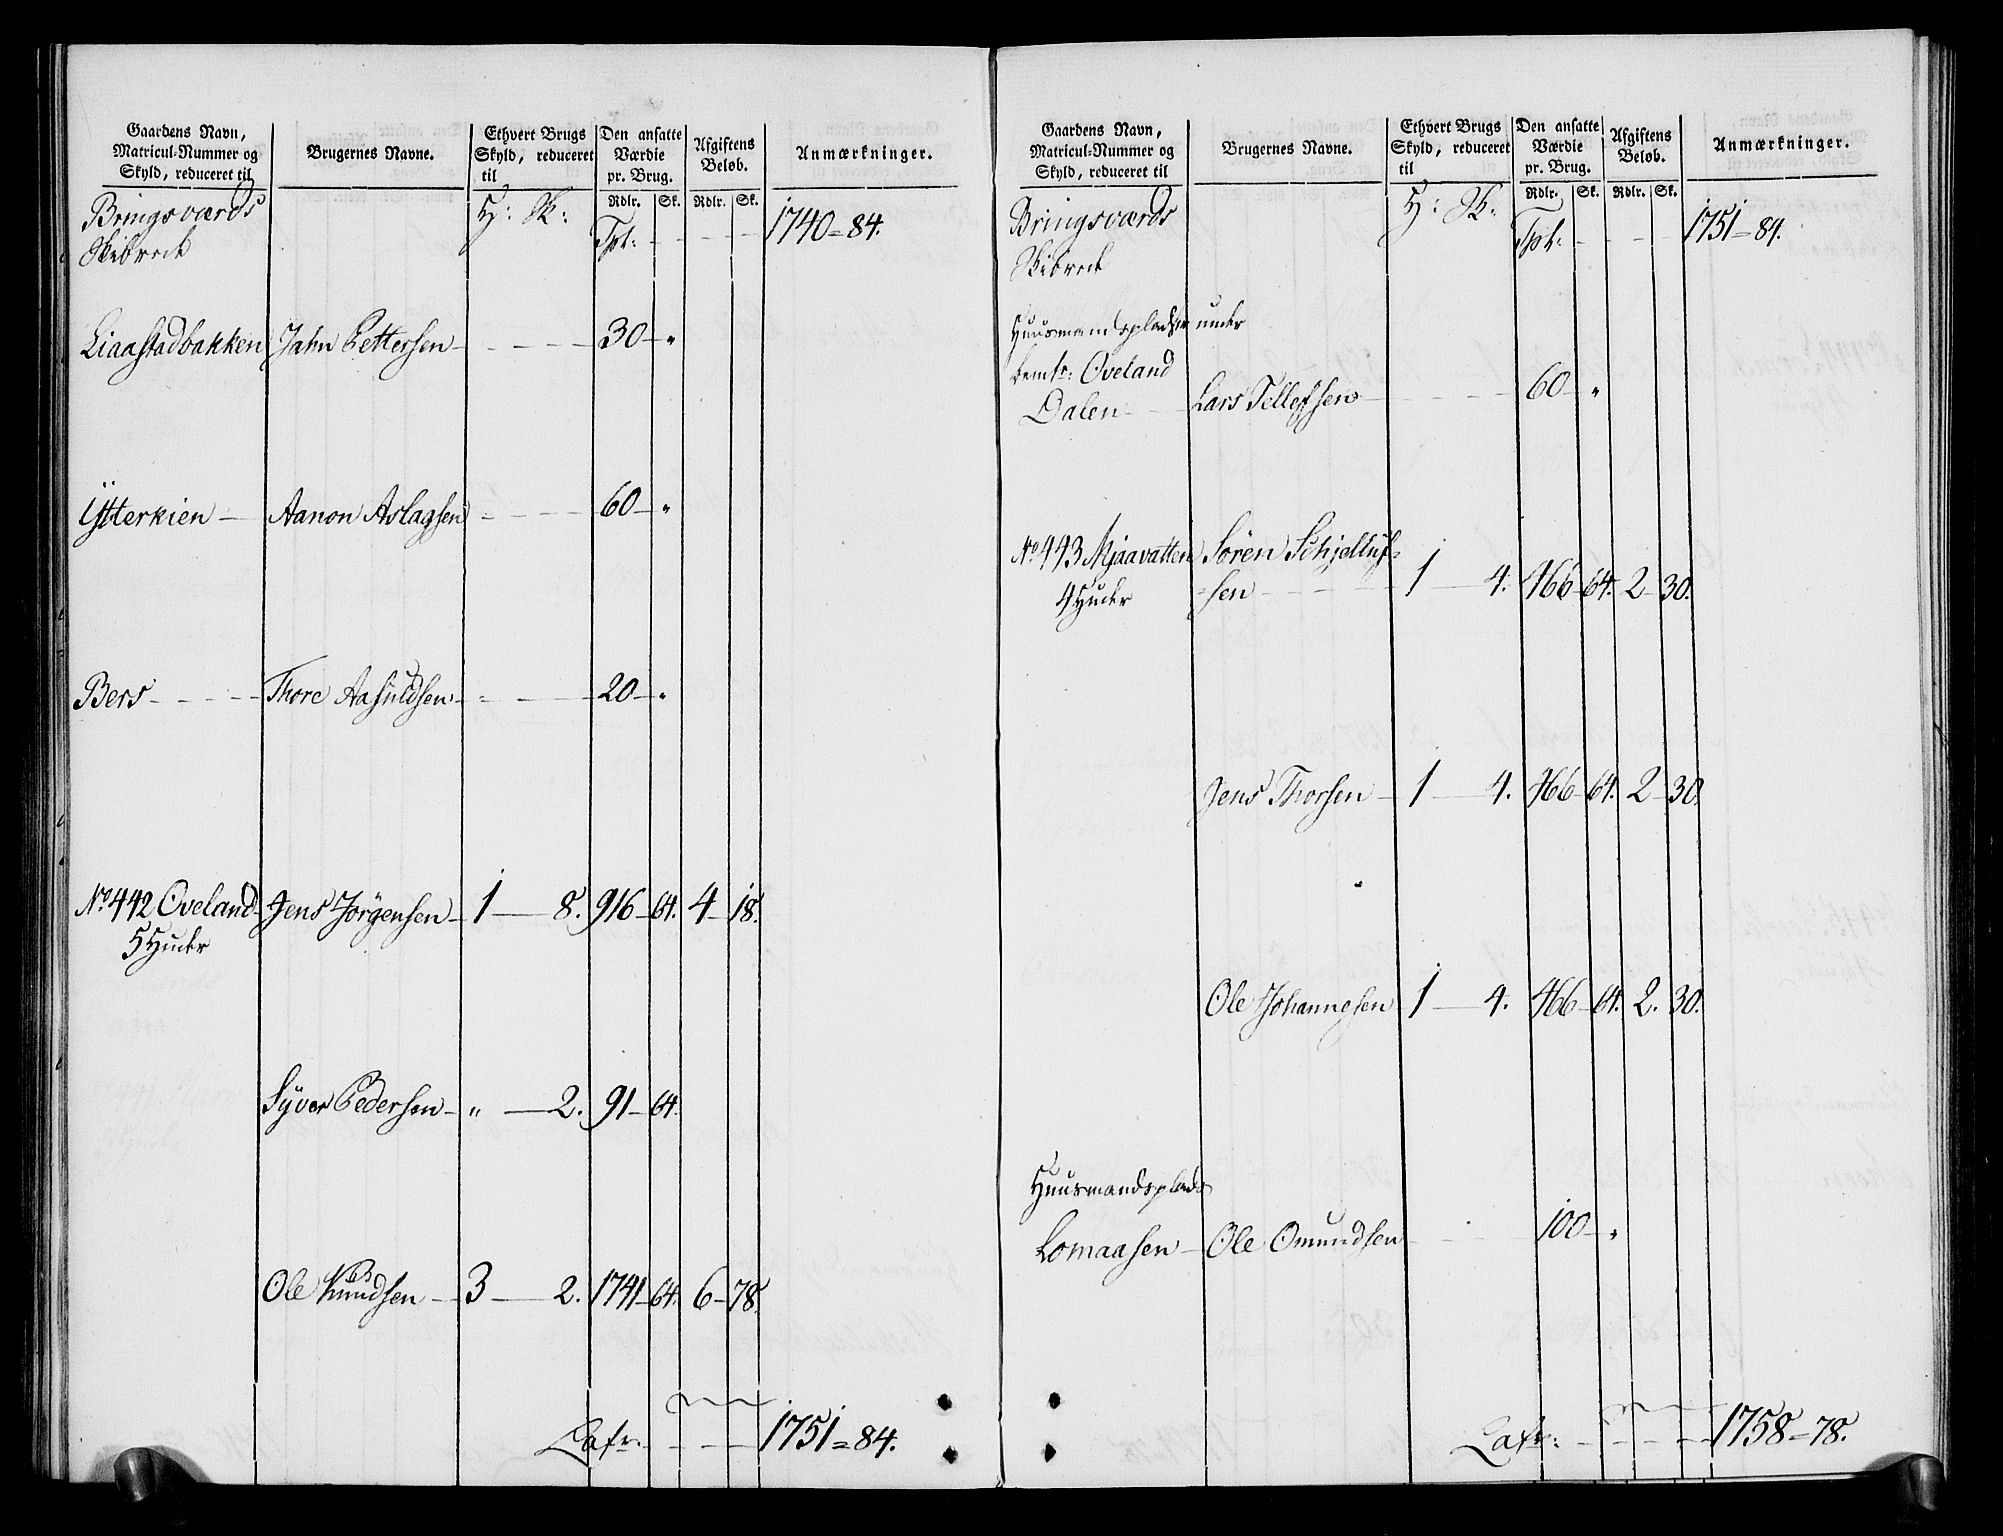 Gaardens Navn,
Matricul-Nummer og
Skyld, reduceret til
Brugernes Navne.
Ethvert Brugs
Skyld, reduceret
til
Den ansatte
Værdie
pr. Brug.
Afgiftens
Beløb.
Anmærkninger.
Rdlr. Sk. Rdlr. Sk.
Bringsværds H: Sk: Tpt: - - - - 1740=84.
Skibrede
Liaastadbakken Jahn Pettersen - - - - 30 - "
Ytterkien - Aanon Aslagsen - - - 60 - "
Bers - - - - Thore Aasuldsen - - - - 20 - "
No 442 Oveland Jens Jørgensen - 1 - 8. 916 - 64. 4 - 18.
5 Huder
Syver Pedersen - " - 2. 91 - 64.
Ole Knudsen - 3 - 2. 1741 - 64. 6 - 78.
Latr. - - - - 1751=84.
Gaardens Navn,
Matricul-Nummer og
Skyld, reduceret til
Brugernes Navne.
Ethvert Brugs
Skyld, reduceret
til
Den ansatte
Værdie
pr. Brug.
Afgiftens
Beløb.
Anmærkninger.
Rdlr. Sk. Rdlr. Sk.
Bringsværds H: Sk: Tpt: - - - - 1751=84.
Skibrede
Huusmandspladser under
bemte: Oveland
Dalen - - Lars Tellefsen - - - - 60 - "
No 443 Mjaavatten Søren Schjelluf=
4 Huder =sen - - - - 1 - 4. 466 - 64. 2 - 30.
Jens Thorsen - 1 - 4. 466 - 64. 2 - 30.
Ole Johannesen 1 - 4. 466 - 64. 2. 30.
Huusmandsplads
Lomaasen - Ole Omundsen - - - 100 - "
Latr: - - - - 1758=78.